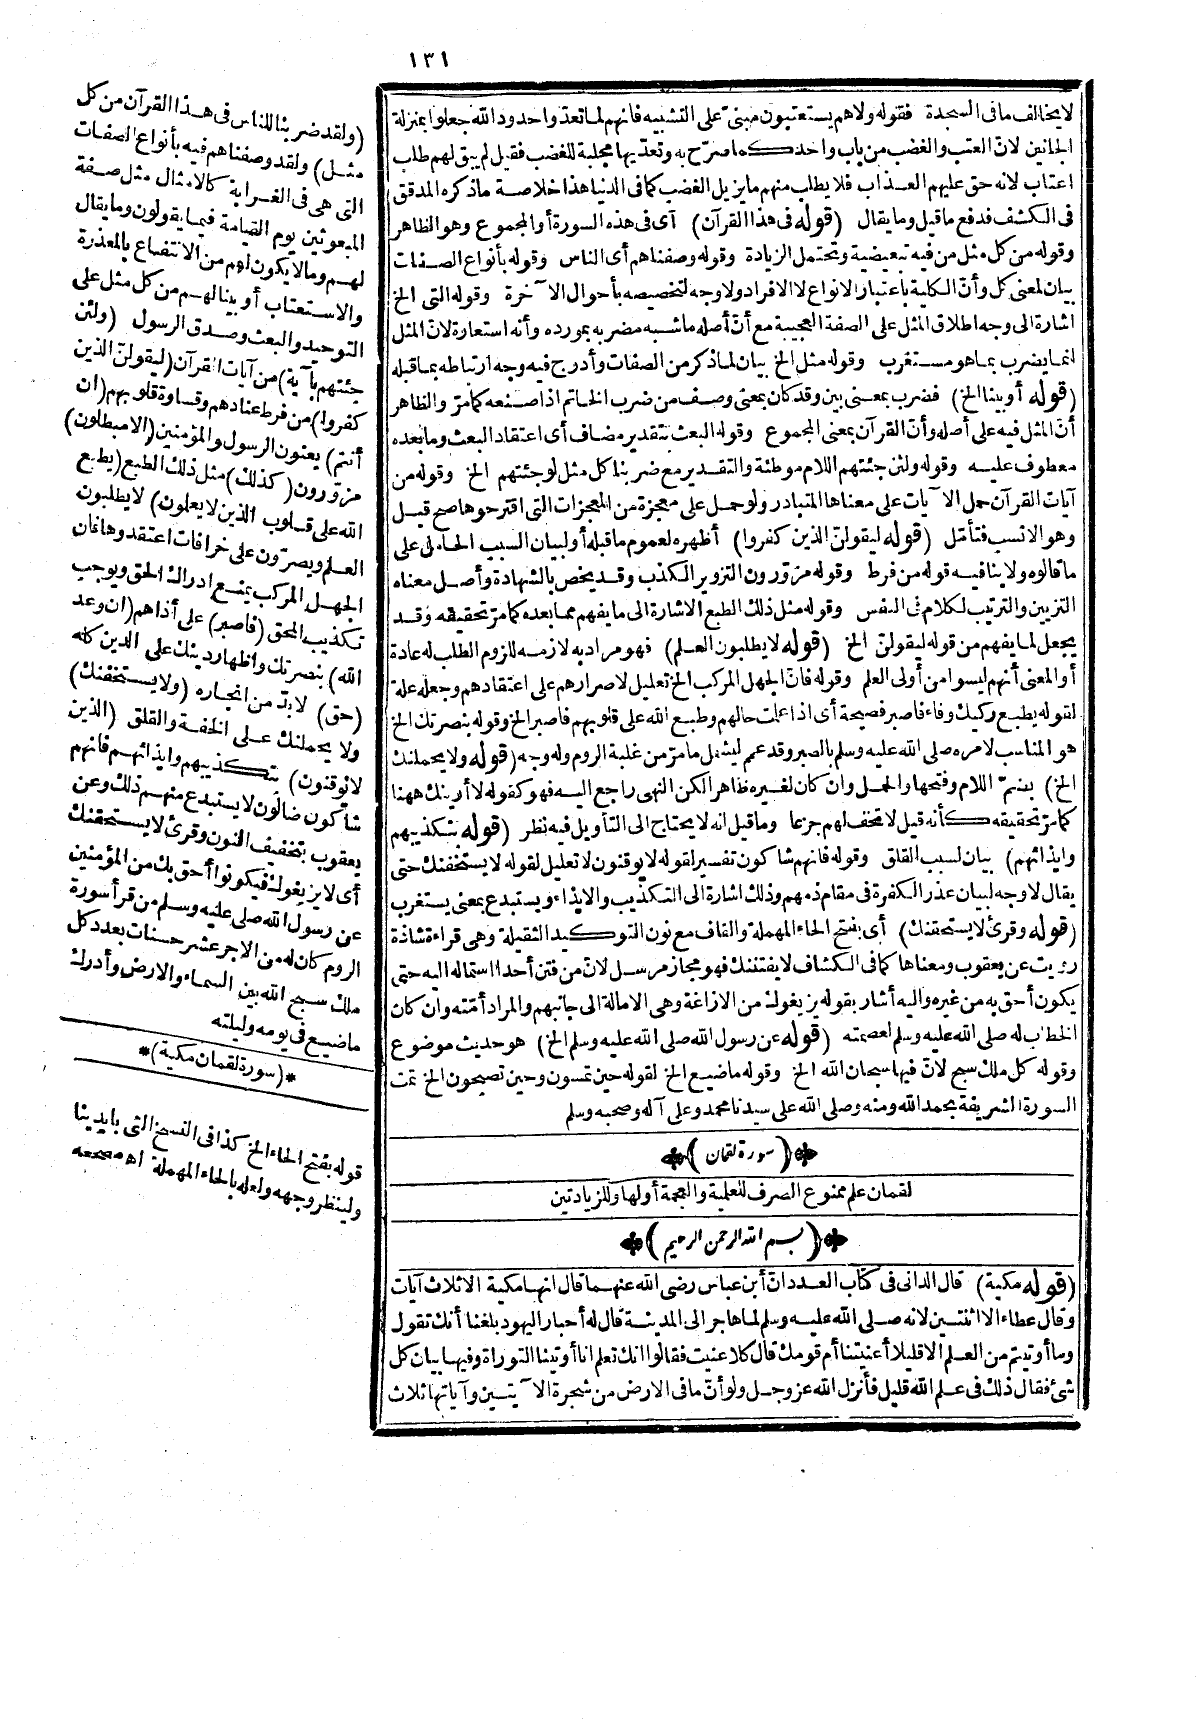 ١٣١
لا يخالف ما فى السجدة فقوله ولا هم يستعتبون مبنىّ على التشبيه فانهم لما تعدّوا حدود الله جعلوا بمنزلة
الجانين لانّ العتب والغضب من باب واحد كما صرّح به وتعدّيها مجلبة للغضب فقيل لم يبق لهم طلب
اعتاب لانه حق عليهم العذاب فلا يطلب منهم ما يزيل الغضب كما فى الدنيا هذا خلاصة ما ذكره المدقق
فى الكشف فدفع ما قيل وما يقال (قوله فى هذا القرآن) أى فى هذه السورة أو المجموع وهو الظاهر
وقوله من كل مثل من فيه تبعيضية وتحتمل الزيادة وقوله وصفناهم أى الناس وقوله بأنواع الصفات
بيان لمعنى كل وأنّ الكلية باعتبار الانواع لا الافراد ولا وجه لتخصيصه بأحوال الآخرة وقوله التى الخ
اشارة الى وجه اطلاق المثل على الصفة العجيبة مع أنّ أصله ما شبه مضربه بمورده وأنه استعارة لانّ المثل
انما يضرب بما هو مستغرب وقوله مثل الخ بيان لما ذكر من الصفات وأدرج فيه وجه ارتباطه بما قبله
(قوله أو بينا الخ) فضرب بمعنى بين وقد كان بمعنى وصف من ضرب الخاتم اذا صنعه كما مرّ والظاهر
أنّ المثل فيه على أصله وأنّ القرآن بمعنى المجموع وقوله البعث بتقدير مضاف أى اعتقاد البعث وما بعده
معطوف عليه وقوله ولئن جئتهم اللام موطئة والتقدير مع ضربنا كل مثل لو جئتهم الخ وقوله من
آيات القرآن حمل الآيات على معناها المتبادر ولو حمل على معجزة من المعجزات التى اقترحوها صح قيل
وهو الانسب فتأمّل (قوله ليقولنّ الذين كفروا) أظهره لعموم ما قبله أو لبيان السبب الحامل على
ما قالوه ولا ينافيه قوله من فرط وقوله مزوّرون التزوير الكذب وقد يخص بالشهادة وأصل معناه
التزيين والترتيب لكلام فى النفس وقوله مثل ذلك الطبع الاشارة الى ما يفهم مما بعده كما مرّ تحقيقه وقد
يجعل لما يفهم من قوله ليقولنّ الخ (قوله لا يطلبون العلم) فهو مراد به لازمه للزوم الطلب له عادة
أو المعنى أنهم ليسوا من أولى العلم وقوله فانّ الجهل المركب الخ تعليل لاصرارهم على اعتقادهم وجعله علة
لقوله يطبع ركيك وفاء فاصبر فصيحة أى اذا علمت حالهم وطبع الله على قلوبهم فاصبر الخ وقوله بنصرتك الخ
هو المناسب لامره صلى الله عليه وسلم بالصبر وقد عمم ليشمل ما مرّ من غلبة الروم وله وجه (قوله ولا يحملنك
الخ) بضمّ اللام وفتحها والحمل وان كان لغيره ظاهرا لكن النهى راجع اليه فهو كقوله لا أرينك ههنا
كما مرّ تحقيقه كأنه قيل لا تخف لهم جزعا وما قيل انه لا يحتاج الى التأويل فيه نظر (قوله بتكذيبهم
وايذائهم) بيان لسبب القلق وقوله فانهم شاكون تفسير لقوله لا يوقنون لا تعليل لقوله لا يستخفنك حتى
يقال لا وجه لبيان عذر الكفرة فى مقام ذمهم وذلك اشارة الى التكذيب والايذاء ويستبدع بمعنى يستغرب
(قوله وقرئ لا يستحقنك) أى بفتح الحاء المهملة والقاف مع نون التوكيد الثقيلة وهى قراءة شاذة
رويت عن يعقوب ومعناها كما فى الكشاف لا يفتننك فهو مجاز مرسل لانّ من فتن أحدا استماله اليه حتى
يكون أحق به من غيره واليه أشار بقوله يزيغوك من الازاغة وهى الامالة الى جانبهم والمراد أمّته وان كان
الخطاب له صلى الله عليه وسلم لعصمته (قوله عن رسول الله صلى الله عليه وسلم الخ) هو حديث موضوع
وقوله كل ملك سبح لانّ فيها سبحان الله الخ وقوله ما ضيع الخ لقوله حين تمسون وحين تصبحون الخ تمت
السورة الشريفة بحمد الله ومنه وصلى الله على سيدنا محمد وعلى آله وصحبه وسلم
(سورة لقمان)
لقمان علم ممنوع الصرف للعلمية والعجمة أو لها وللزيادتين
(بسم الله الرحمن الرحيم)
(قوله مكية) قال الدانى فى كتاب العدد ان ابن عباس رضى الله عنهما قال انها مكية الا ثلاث آيات
وقال عطاء الا اثنتين لانه صلى الله عليه وسلم لما هاجر الى المدينة قال له أحبار اليهود بلغنا أنك تقول
وما أوتيتم من العلم الا قليلا أعنيتنا أم قومك قال كلا عنيت فقالوا انك تعلم انا أوتينا التوراة وفيها بيان كل
شئ فقال ذلك فى علم الله قليل فأنزل الله عز وجل ولو أنّ ما فى الارض من شجرة الآيتين وآياتها ثلاث
(ولقد ضربنا للناس فى هذا القرآن من كل
مثل) ولقد وصفناهم فيه بأنواع الصفات
التى هى فى الغرابة كالامثال مثل صفة
المبعوثين يوم القيامة فيما يقولون وما يقال
لهم وما لا يكون لهم من الانتفاع بالمعذرة
والاستعتاب أو بينا لهم من كل مثل على
التوحيد والبعث وصدق الرسول (ولئن
جئتهم بآية) من آيات القرآن (ليقولنّ الذين
كفروا) من فرط عنادهم وقساوة قلوبهم (ان
أنتم) يعنون الرسول والمؤمنين (الا مبطلون)
مزوّرون (كذلك) مثل ذلك الطبع (يطبع
الله على قلوب الذين لا يعلمون) لا يطلبون
العلم ويصرّون على خرافات اعتقدوها فان
الجهل المركب يمنع ادراك الحق ويوجب
تكذيب المحق (فاصبر) على أذاهم (ان وعد
الله) بنصرتك واظهار دينك على الدين كله
(حق) لا بدّ من انجازه (ولا يستخفنك)
ولا يحملنك على الخفة والقلق (الذين
لا يوقنون) بتكذيبهم وايذائهم فانهم
شاكون ضالون لا يستبدع منهم ذلك وعن
يعقوب بتخفيف النون وقرئ لا يستحقنك
أى لا يزيغوك فيكونوا أحق بك من المؤمنين
عن رسول الله صلى عليه وسلم من قرأ سورة
الروم كان له من الاجر عشر حسنات بعدد كل
ملك سبح الله بين السماء والارض وأدرك
ما ضيع فى يومه وليلته
*(سورة لقمان مكية)*
قوله بفتح الحاء الخ كذا فى النسخ التى بايدينا
ولينظر وجهه ولعله بالحاء المهملة اه مصححه